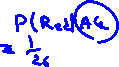 P(Red Ace)
= 1/26